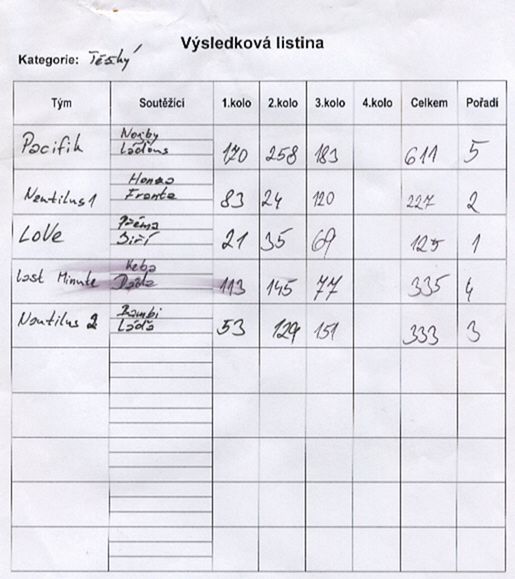 Výsledková listina
Kategorie: Těžký
Tým Soutěžící 1.kolo 2.kolo 3.kolo 4.kolo Celkem Pořadí
Norby
Pacifik 170 258 183 611 5
Honza
Nautilus 1 Franta 83 24 120 227 2
Přéma
LoVe Jiří 21 35 69 125 1
Keba
Last Minute 113 145 77 335 4
Bambi
Nautilus 2 Láďa 53 129 151 333 3